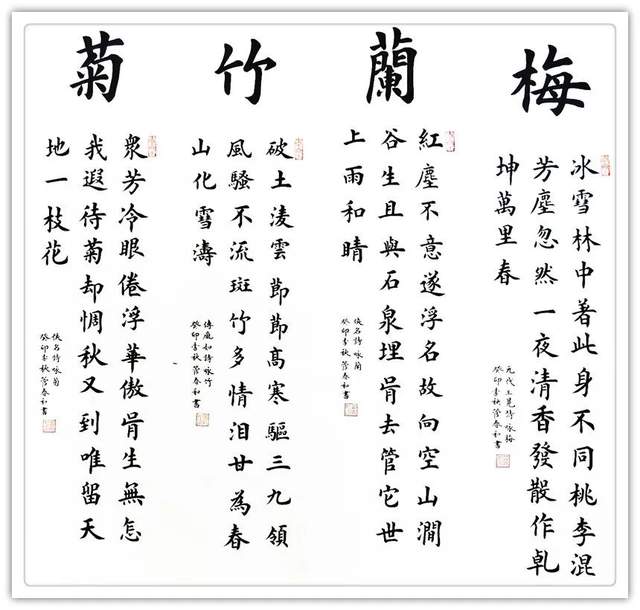 梅
冰雪林中著此身不同桃李混
芳塵忽然一夜清香發散作乹
坤萬里春
元代王冕詩咏梅
癸卯季秋管春和書
蘭
紅塵不意遂浮名故向空山澗
谷生且與石泉埋骨去管它世
上雨和晴
佚名詩咏蘭
癸卯季秋管春和書
竹
破土淩雲節節高寒驅三九領
風騷不流斑竹多情泪甘為春
山化雪濤
詩咏竹
癸卯季秋管春和書
菊
衆芳冷眼倦浮華傲骨生無怎
我遐待菊却惆秋又到唯留天
地一枝花
佚名詩咏菊
癸卯季秋管春和書